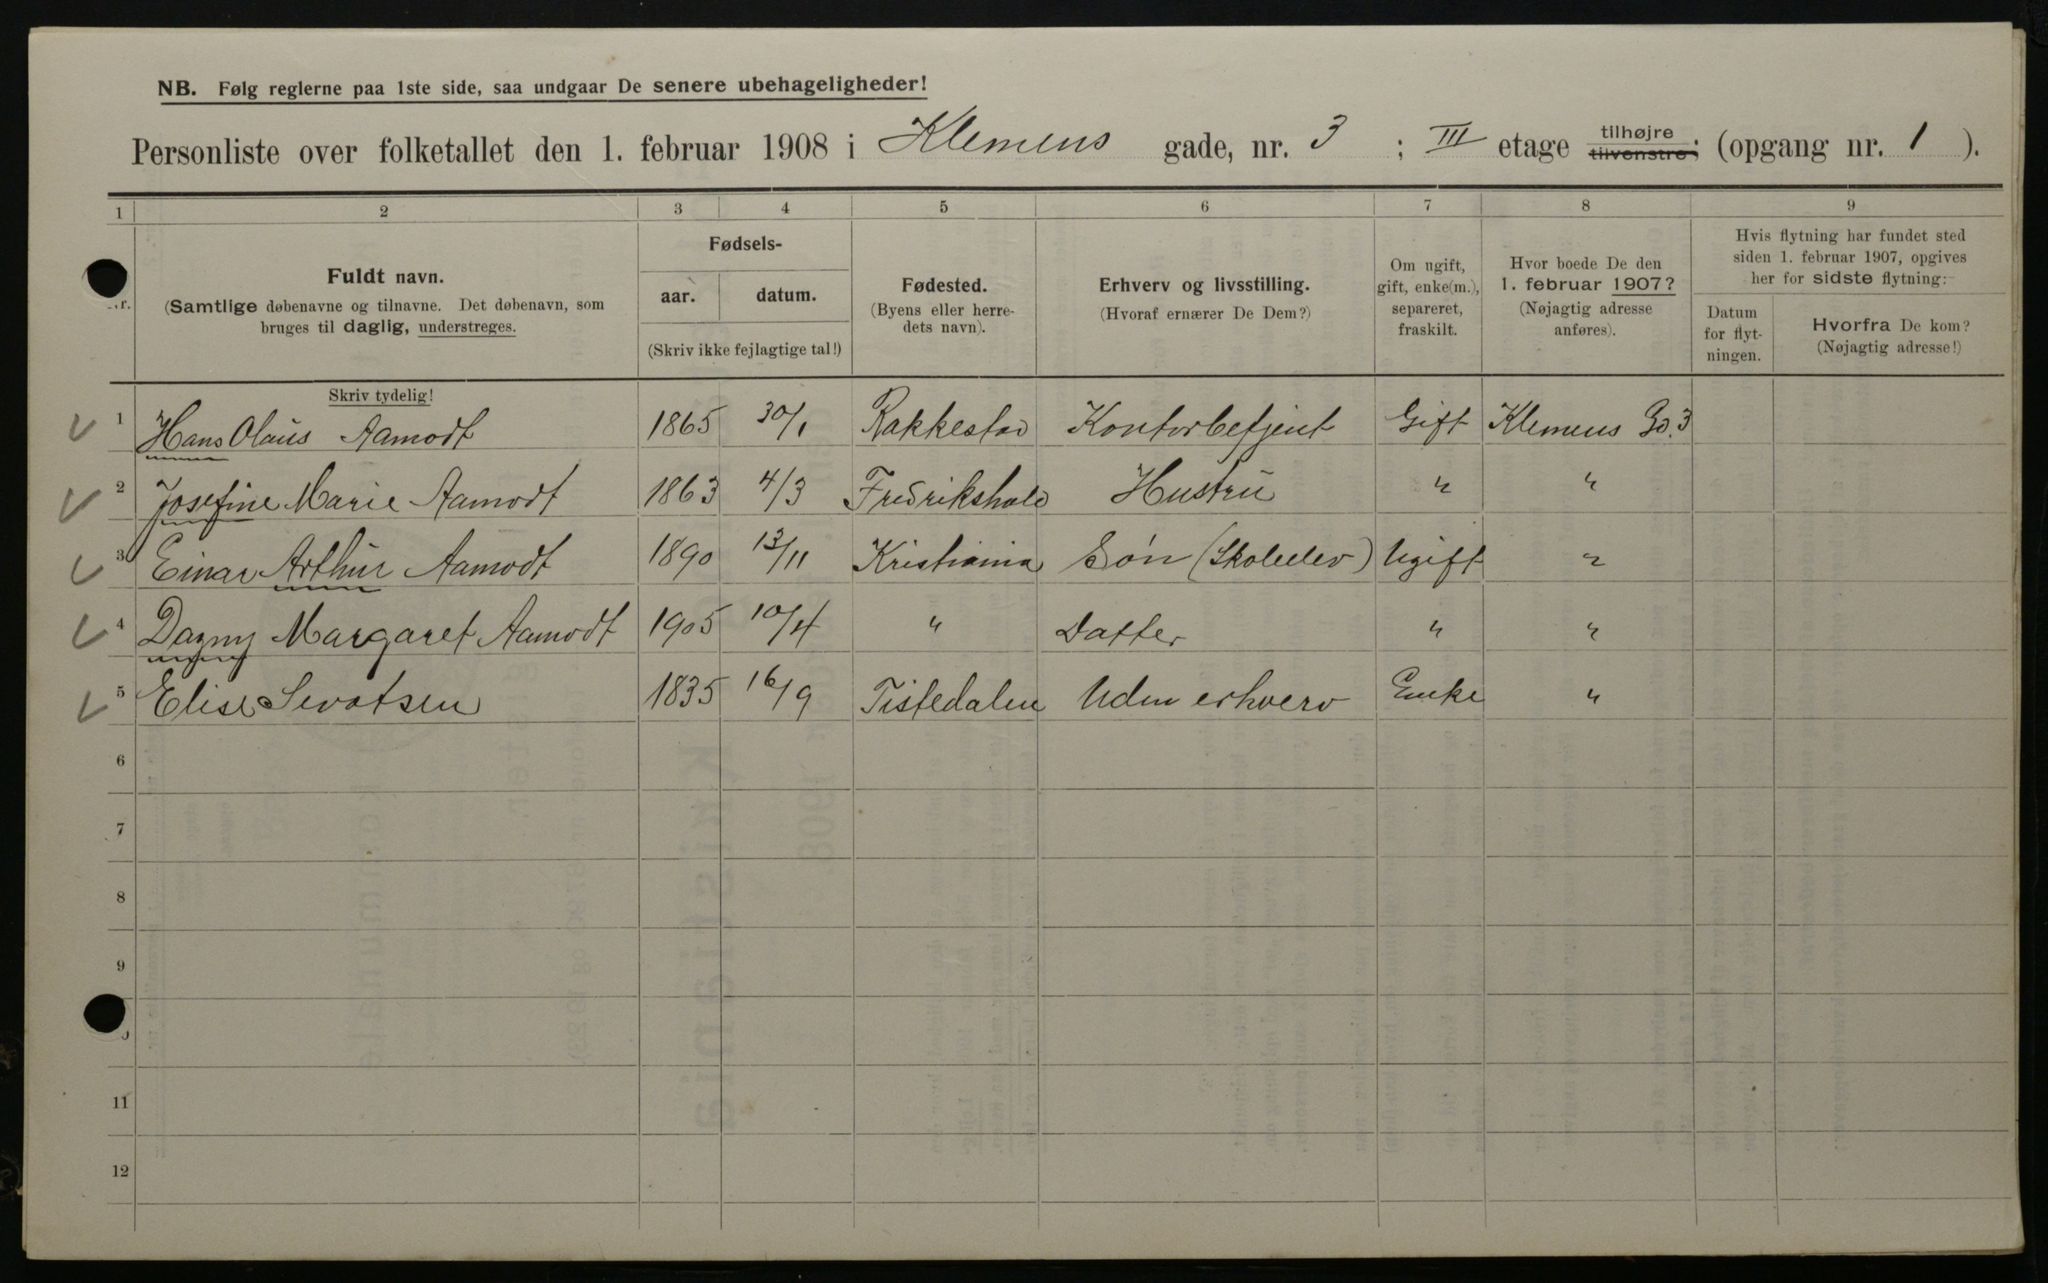 NB. Følg reglerne paa 1ste side, saa undgaar De senere ubehageligheder!
Personliste over folketallet den 1. februar 1908 i Klemens gade, nr. 3 ; III etage tilhøjre tilvenstre; (opgang nr. 1 ).
1 2 3 4 5 6 7 8 9
Fuldt navn.
(Samtlige døbenavne og tilnavne. Det døbenavn, som
bruges til daglig, understreges.
Skriv tydelig!
Fødsels-
aar. datum.
(Skriv ikke fejlagtige tal!)
Fødested.
(Byens eller herre-
dets navn).
Erhverv og livsstilling.
(Hvoraf ernærer De Dem?)
Om ugift,
gift, enke(m.),
separeret,
fraskilt.
Hvor boede De den
1. februar 1907?
(Nøjagtig adresse
anføres).
Hvis flytning har fundet sted
siden 1. februar 1907, opgives
her for sidste flytning:
Datum
for flyt-
ningen.
Hvorfra De kom?
(Nøjagtig adresse!)
1 Hans Olaus Aamodt 1865 30/1 Rakkestad Kontorbetjent Gift Klemens Gd. 3
2 Josefine Marie Aamodt 1863 4/3 Fredrikshald Hustru " "
3 Einar Arthur Aamodt 1890 13/11 Kristiania Søn (Skoleelev) Ugift "
4 Dagny Margaret Aamodt 1905 10/4 " Datter " "
5 Elise 1835 16/9 Tistedalen Uden erhverv Enke "
6
7
8
9
11
12